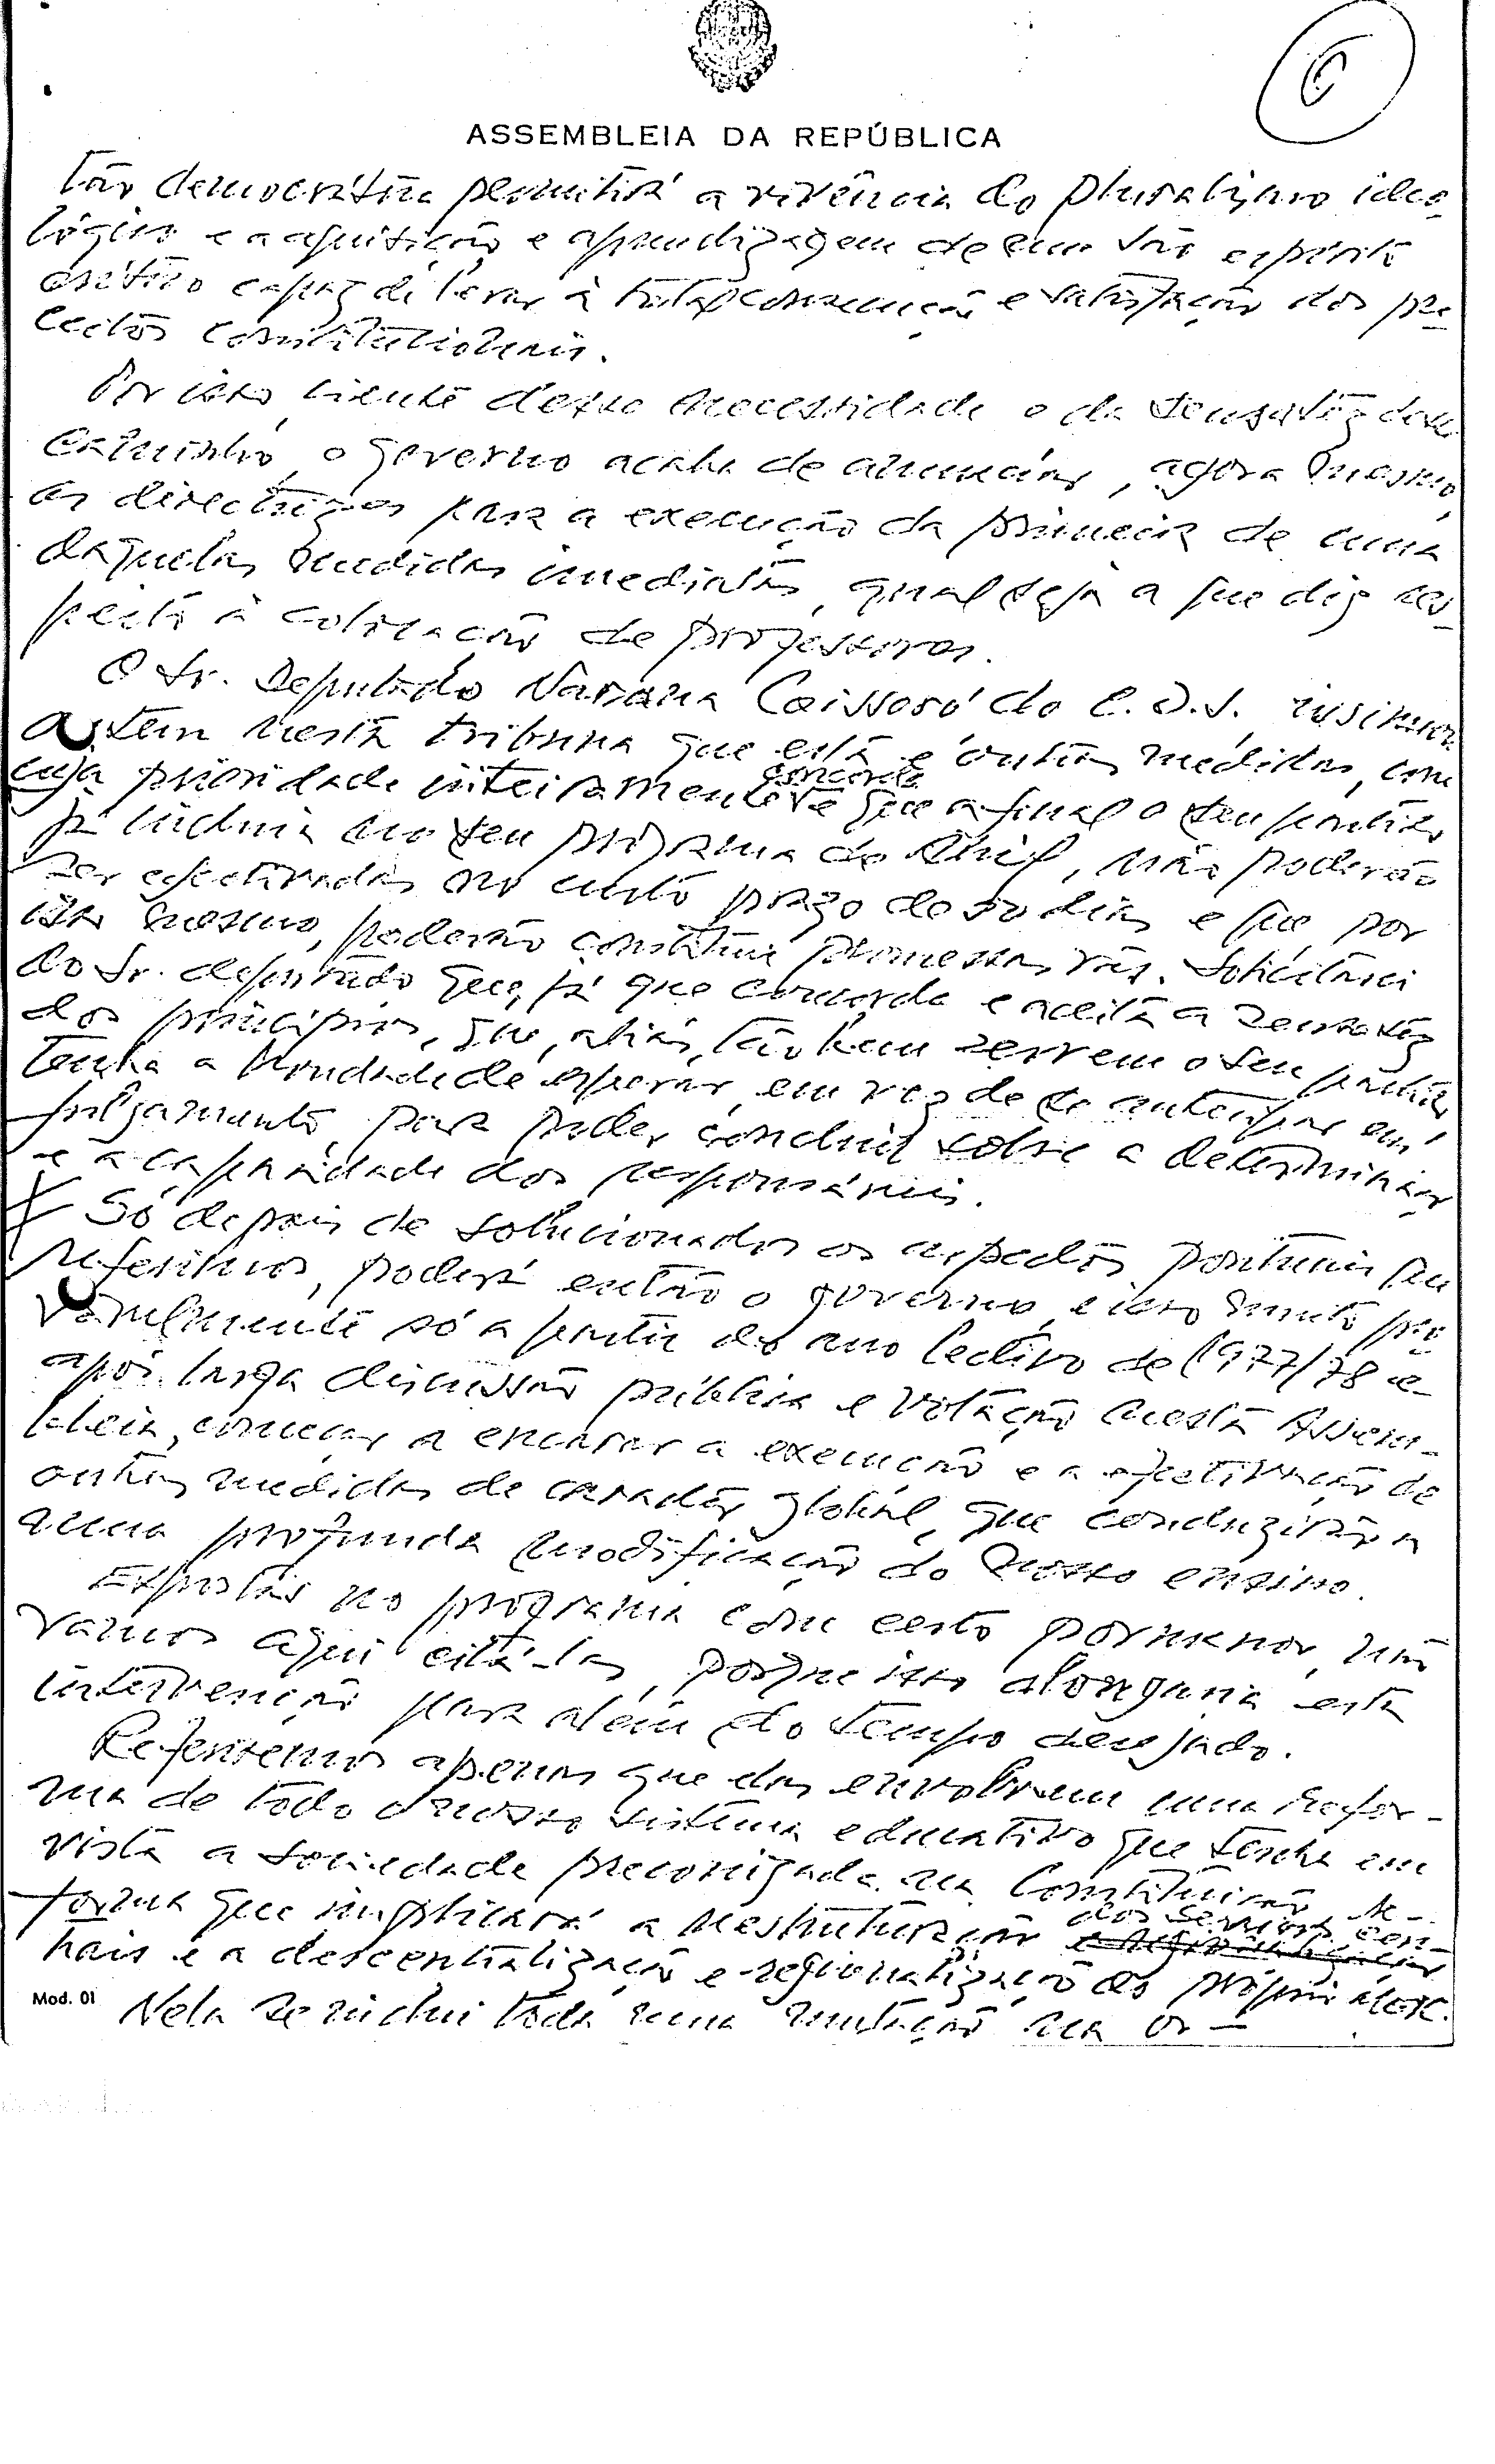 6
ASSEMBLEIA DA REPÚBLICA
tão democrática permitirá a vivência do pluralismo ideo-
lógico e a aquisição e aprendizagem de um são espírito
crítico capaz de levar à total consecução e satisfação dos pre-
ceitos constitucionais.
Por isso, ciente dessa necessidade e da sensatez desse
caminho, o governo acaba de anunciar, agora mesmo,
as directrizes para a execução da primeira de uma
daquelas medidas imediatas, qual seja a que diz res-
peito à colocação de professores.
O Sr. Deputado Narana Coissoró do C.D.S. insinuou
ontem nesta tribuna que esta e outras medidas, com
cuja prioridade inteiramente concorda e que afinal o seu partido
já incluia no seu programa de Abril, não poderão
ser efectivadas no curto prazo de 30 dias e que por
isso mesmo, poderão constituir promessas vãs. Solicitaria
ao Sr. deputado que, já que concorda e aceita a sensatez
dos princípios, que, aliás, tão bem servem o seu partido,
tenha a bondade de esperar, em vez de se antecipar em
julgamento, para poder concluir sobre a determinação
e a capacidade dos responsáveis.
Só depois de solucionados os aspectos pontuais que
referimos, poderá então o governo, e isso muito pro-
vavelmente só a partir do ano lectivo de 1977/78 e
após larga discussão pública e votação nesta Assem-
bleia, começar a encarar a execução e a efectivação de
outras medidas de carácter global, que conduzirão a
uma profunda modificação do nosso ensino.
Expostas no programa com certo pormenor, não
vamos aqui citá-las, porque isso alongaria esta
intervenção para além do tempo desejado.
Referiremos apenas que elas envolvem uma refor-
ma de todo o nosso sistema educativo que tenha em
vista a sociedade preconizada na Constituição, re-
forma que implicará a reestruturação dos serviços cen-
trais e a descentralização e regionalização do próprio
Mod. 01 Nela se inclui toda uma mutação na or-